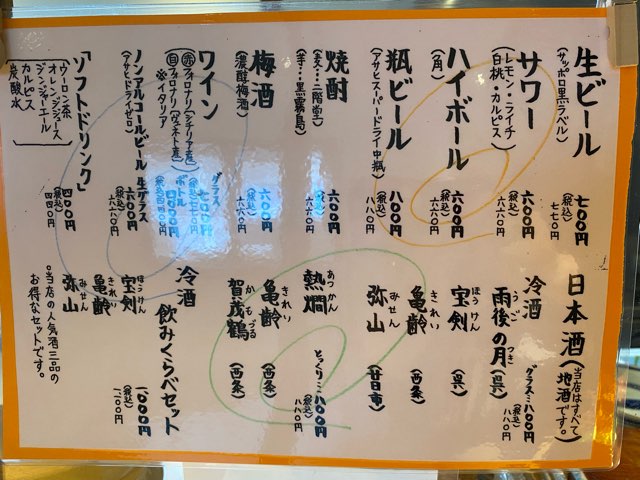 生ビール
(サッポロ黒ラベル)
七〇〇円
(税込)
七七〇円
サワー
(レモン・ライチ
白桃・カルピス)
六〇〇円
(税込)
六六〇円
ハイボール
(角)
六〇〇円
(税込)
六六〇円
瓶ビール
(アサヒスーパードライ中瓶)
八〇〇円
(税込)
八八〇円
焼酎
(麦…二階堂)
(芋…黒霧島)
六〇〇円
(税込)
六六〇円
梅酒
(濃醇梅酒)
六〇〇円
(税込)
六六〇円
ワイン
赤 フォロナリ(シチリア産)
白 フォロナリ(ヴェネト産)
※イタリア
グラス
七〇〇円
(税込)七七〇円
ボトル
四〇〇〇円
(税込)四四〇〇円
ノンアルコールビール
(アサヒドライゼロ)
生グラス
六〇〇円
(税込)
六六〇円
「ソフトドリンク」
ウーロン茶
オレンジジュース
ジンジャーエール
カルピス
炭酸水
四〇〇円
(税込)
四四〇円
日本酒(当店はすべて
地酒です。)
冷酒
グラス…八〇〇円
(税込)
八八〇円
雨後の月(呉)
うご つき
宝剣(呉)
ほうけん
亀齢(西条)
きれい
弥山(廿日市)
みせん
熱燗
あつかん
とっくり…八〇〇円
(税込)
八八〇円
亀齢(西条)
きれい
賀茂鶴(西条)
かもつる
冷酒
飲みくらべセット
一〇〇〇円
(税込)
一一〇〇円
宝剣
ほうけん
亀齢
きれい
弥山
みせん
。当店の人気酒三品の
お得なセットです。